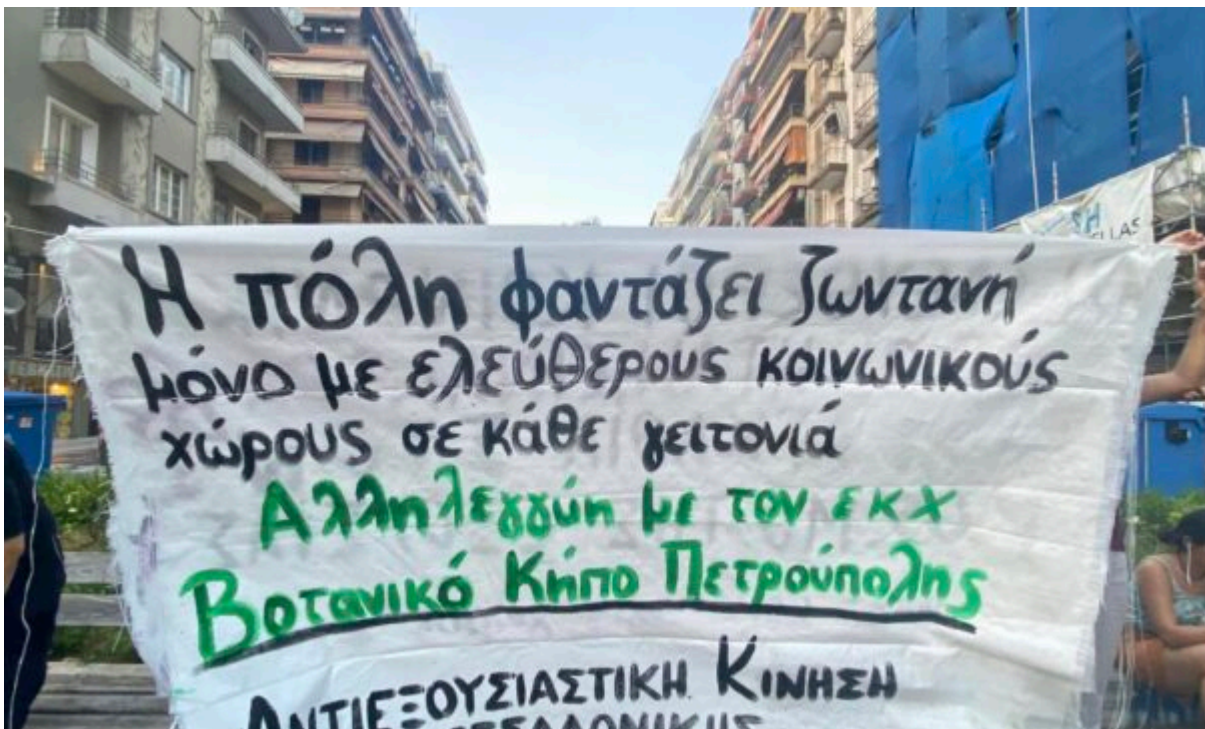 Η πόλη φαντάζει ζωντανή
μόνο με ελεύθερους κοινωνικούς
χώρους σε κάθε γειτονιά
Αλληλεγγύη με τον ΕΚΧ
Βοτανικό Κήπο Πετρούπολης
ΑΝΤΙΕΞΟΥΣΙΑΣΤΙΚΗ ΚΙΝΗΣΗ